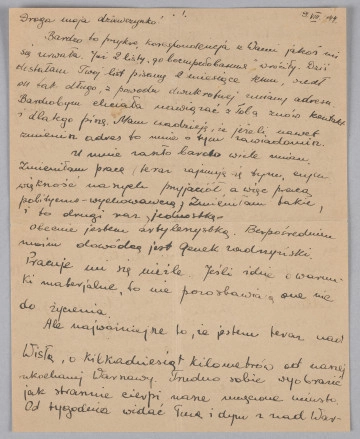 Droga moja dziewczynko!
Bardzo to przykre, korespondencja z Wami jakoś mi
się urwała. Już 2 listy do wróciły. Dziś
dostałam Twój list pisany 2 miesiące temu, szedł
on tak długo, z powodu dwukrotnej zmiany adresu.
Bardzobym chciała nawiązać z Tobą znów kontakt
i dlatego piszę. Mam nadzieję, że jeżeli nawet
zmienisz adres to mnie o tym zawiadomisz.
U mnie zaszło bardzo wiele zmian.
Zmieniłam pracę (teraz zajmuję się tym, czym
większość naszych przyjaciół a więc pracą
polityczno-wychowawczą), zmieniłam także,
i to drugi raz, jednostkę.
Obecnie jestem artylerzystką. Bezpośrednim
moim dowódcą jest Genek
Pracuje mi się nieźle. Jeśli idzie o warun-
ki materjalne, to nie pozostawiają one nic
do życzenia.
Ale najważniejsze to, że jestem teraz nad
Wisłą, o kilkadziesiąt kilometrów od naszej
ukochanej Warszawy. Trudno sobie wyobrazić
jak strasznie cierpi nasze nieszczęsne miasto.
Od tygodnia widać łunę i dym z nad War-